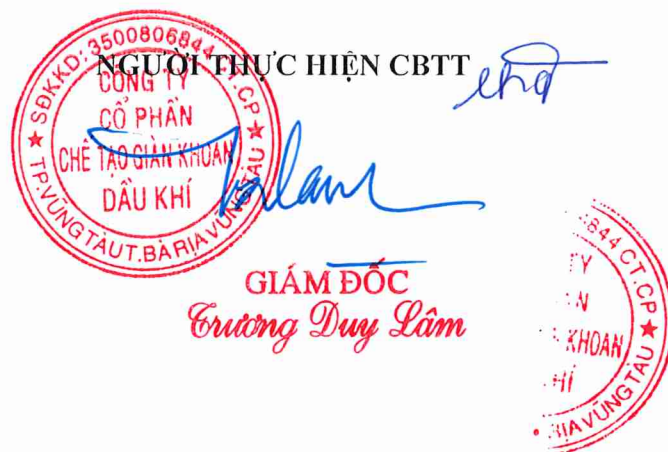 NGƯỜI THỰC HIỆN CBTT
SĐKKD: 3500806844 CT.CP
CÔNG TY
CỔ PHẦN
CHẾ TẠO GIÀN KHOAN
DẦU KHÍ
★ TP.VŨNG TÀU T.BÀ RỊA VŨNG TÀU ★
GIÁM ĐỐC
Trương Duy Lâm
844 CT.CP
KHOAN
KHÍ
RỊA VŨNG TÀU ★